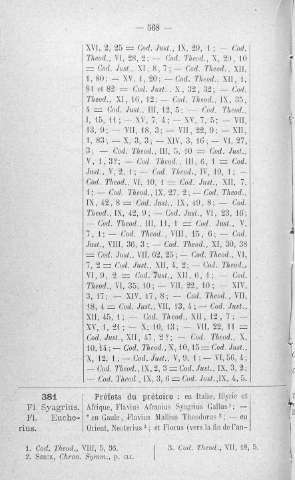 — 568 —
XVI, 2, 25 = Cod. Just., IX, 29, 1; — Cod.
Theod., VI, 28, 2; — Cod. Theod., X, 20, 10
= Cod. Just., XI, 8, 7; — Cod. Theod., XII,
1, 80; — XV, 1, 20; — Cod. Theod., XII, 1,
81 et 82 = Cod. Just., X, 32, 32; — Cod.
Theod., XI, 16, 12; — Cod. Theod., IX, 35,
4 = Cod. Just., III, 12, 5; — Cod. Theod.,
I, 15, 11; — XV, 7, 4; — XV, 7, 5; — VII,
13, 9; — VII, 18, 3; — VII, 22, 9; — XII,
1, 83; — X, 3, 3; — XIV, 3, 16; — VI, 27,
3; — Cod. Theod., III, 5, 10 = Cod. Just.,
V, 1, 3; — Cod. Theod., III, 6, 1 = Cod.
Just., V, 2, 1; — Cod. Theod., IV, 19, 1; —
Cod. Theod., VI, 10, 1 = Cod. Just., XII, 7,
1; — Cod. Theod., IX, 27, 2; — Cod. Theod.,
IX, 42, 8 = Cod. Just., IX, 49, 8; — Cod.
Theod., IX, 42, 9; — Cod. Just., VI, 23, 16;
— Cod. Theod., III, 11, 1 = Cod. Just., V,
7, 1; — Cod. Theod., VIII, 15, 6; — Cod.
Just., VIII, 36, 3; — Cod. Theod., XI, 30, 38
= Cod. Just., VII, 62, 25; — Cod. Theod., VI,
7, 2 = Cod. Just., XII, 4, 2; — Cod. Theod.,
VI, 9, 2 = Cod. Just., XII, 6, 1; — Cod.
Theod., VI, 35, 10; — VII, 22, 10; — XIV,
3, 17; — XIV, 17, 8; — Cod. Theod., VII,
18, 4 = Cod. Just., VII, 13, 4; — Cod. Just.,
XII, 45, 1; — Cod. Theod., XII, 12, 7; —
XV, 1, 21; — X, 10, 13; — VII, 22, 11 =
Cod. Just., XII, 47, 2; — Cod. Theod., X,
10, 14; — Cod. Theod., X, 10, 15 = Cod. Just.,
X, 12, 1; — Cod. Just., V, 9, 1; — VI, 56, 4;
— Cod. Theod., IX, 2, 3 = Cod. Just., IX, 3, 2;
— Cod. Theod., IX, 3, 6 = Cod. Just., IX, 4, 5.
381
Fl. Syagrius.
Fl. Euche-
rius.
Préfets du prétoire : en Italie, Illyrie et
Afrique, Flavius Afranius Syagrius Gallus 1; —
en Gaule, Flavius Mallius Theodorus 2; — en
Orient, Neoterius 3; et Florus (vers la fin de l'an-
1. Cod. Theod., VIII, 5, 36.
2. Seeck, Chron. Symm., p. cxi.
3. Cod. Theod., VII, 18, 5.